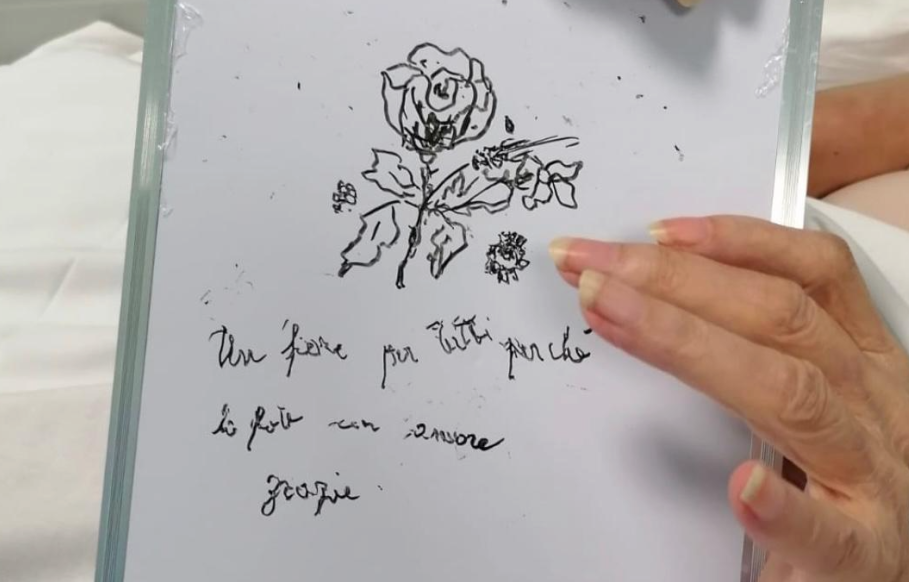 Un fiore per tutti perché
lo fate con amore
grazie